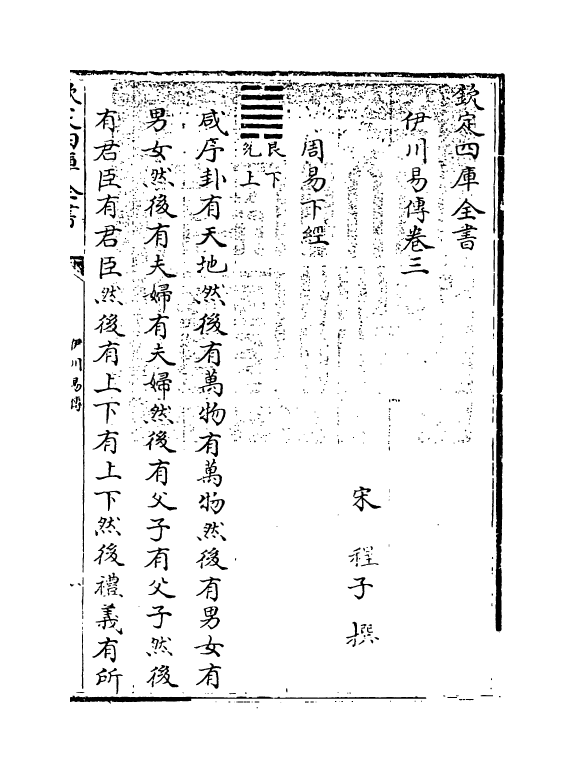 欽定四庫全書
伊川易傳卷三
宋 程子 撰
周易下經
艮下
兌上
咸序卦有天地然後有萬物有萬物然後有男女有
男女然後有夫婦有夫婦然後有父子有父子然後
有君臣有君臣然後有上下有上下然後禮義有所
欽定四庫全書
伊川易傳